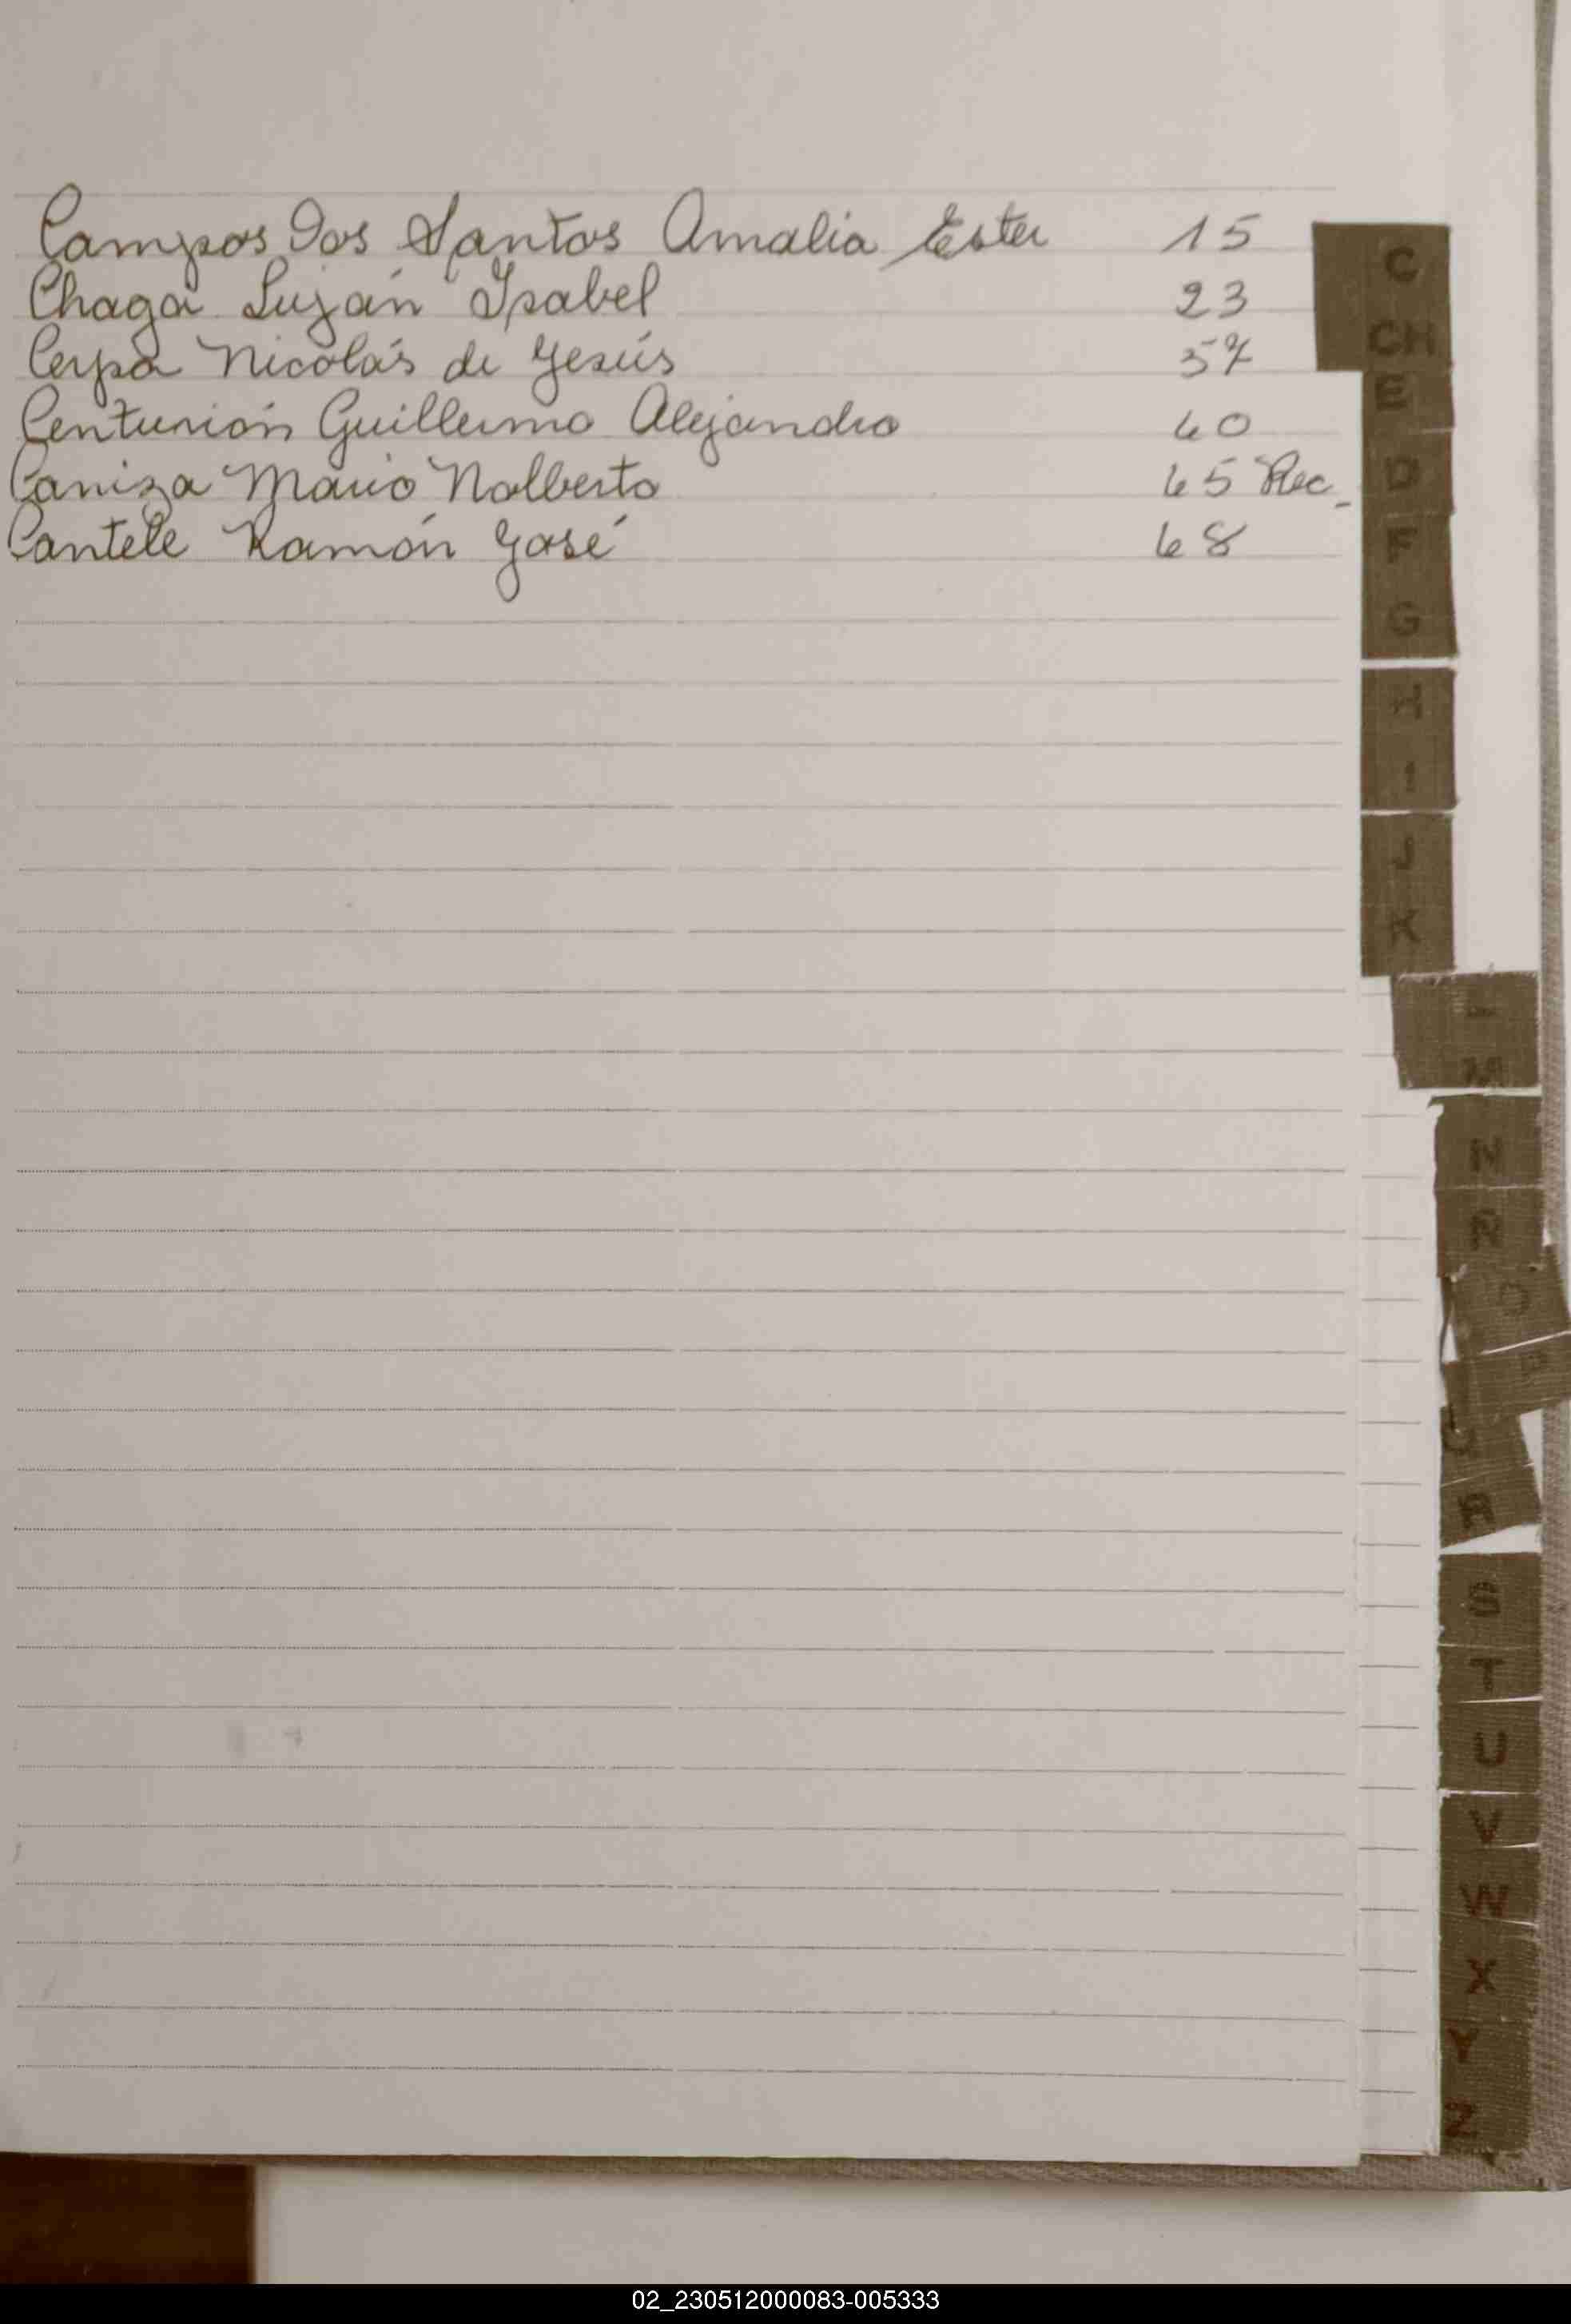 Campos Dos Santos Amalia Ester 15
Chaga Luján Isabel 23
Cerpa Nicolás de Jesús 57
Centurión Guillermo Alejandro 60
Caniza Mario Nolberto 65 Rec.
Cantele Ramón José 68
C
CH
E
D
F
G
H
I
J
K
L
M
N
Ñ
O
P
Q
R
S
T
U
V
W
X
Y
Z
02_230512000083-005333